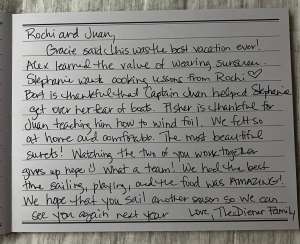 Rochi and Juan,
Gracie said "this was the best vacation ever!
Alex learned the value of wearing sunscreen.
Stephanie wants cooking lessons from Rochi ♡
Bart is thankful that Captain Juan helped Stephanie
get over her fear of boats. Fisher is thankful for
Juan teaching him how to wind foil. We felt so
at home and comfortable. The most beautiful
sunsets! Watching the two of you work together
gives up hope!! What a team! We had the best
time sailing, playing, and the food was AMAZING!
We hope that you sail another season so we can
see you again next year
Love, The Diener Family